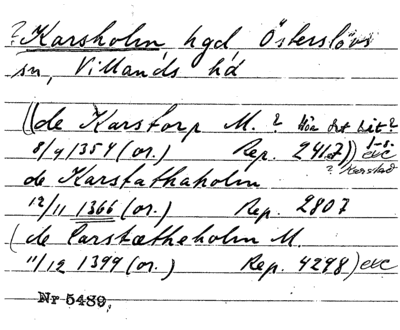 ? Karsholm, hgd, Österslövs
sn, Villands hd
((de Karstorp M. ? Hör det hit?
8/9 1354 (or.) Rep. 2417)) exc
? Karstad
de Karstathaholm
12/11 1366 (or.) Rep. 2807
(de Carstætheholm M.
11/12 1399 (or.) Rep. 4298) exc
Nr 5489.